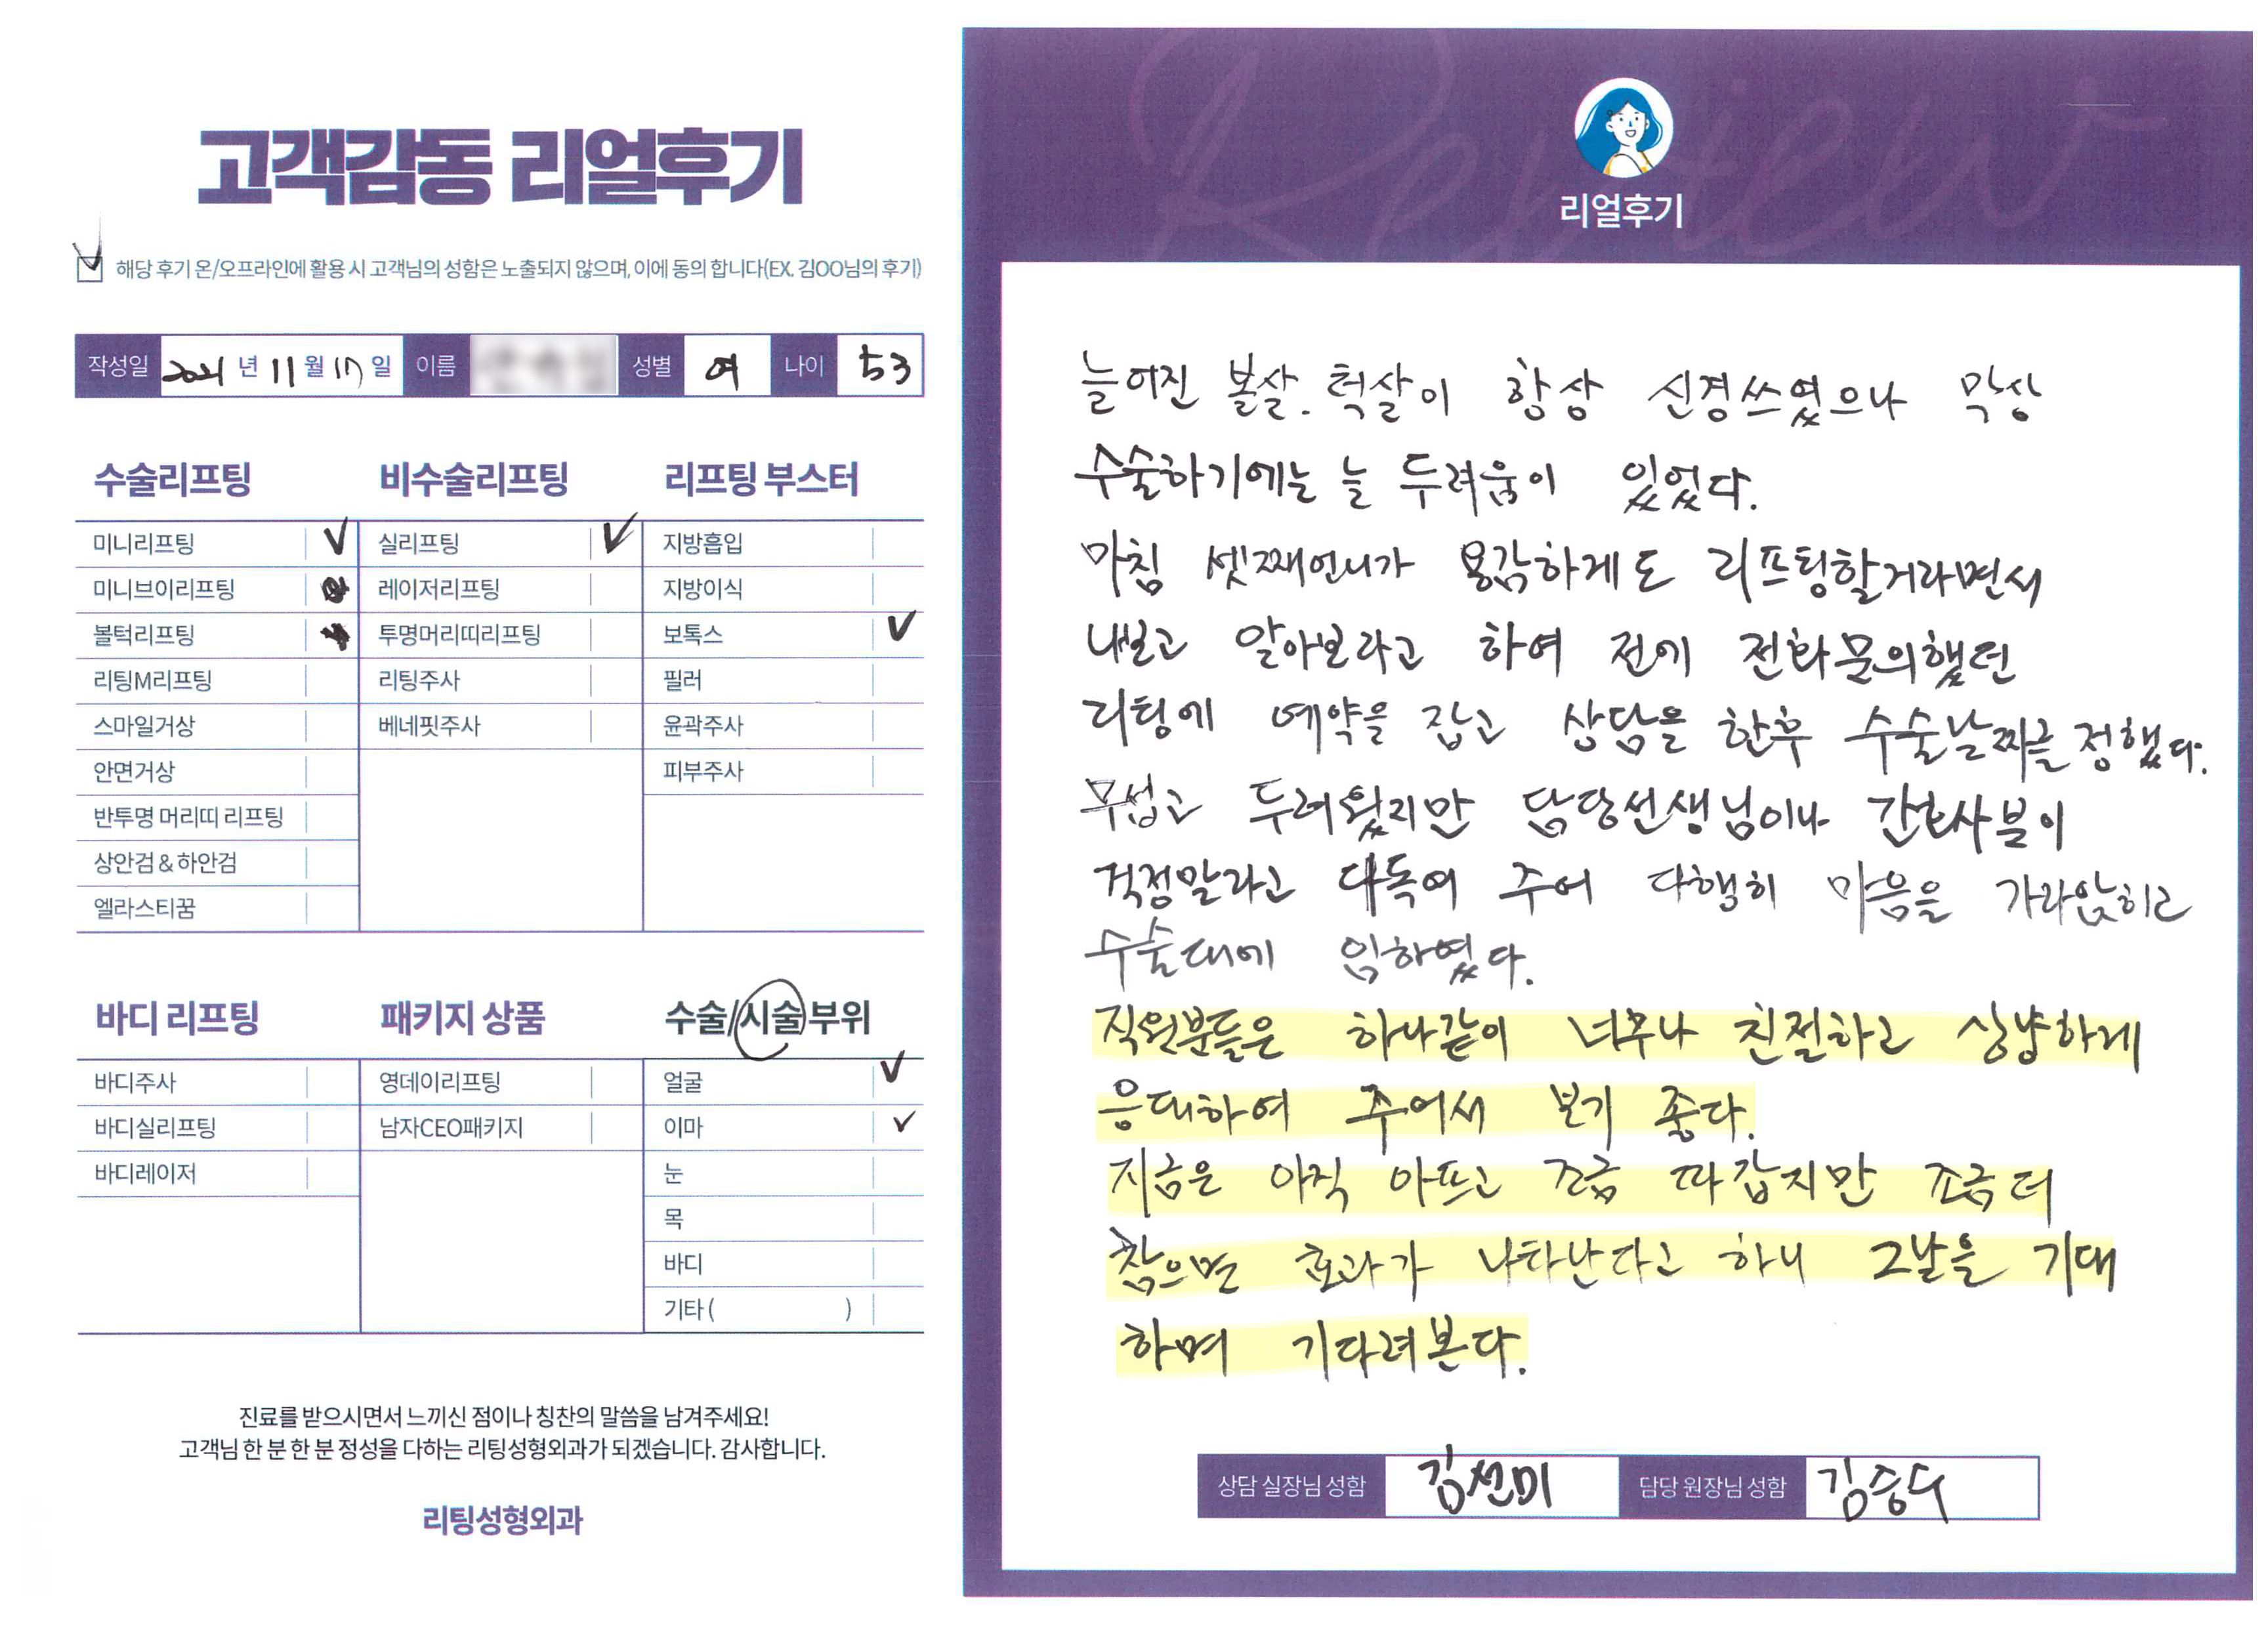 고객감동 리얼후기
해당 후기 온/오프라인에 활용 시 고객님의 성함은 노출되지 않으며, 이에 동의 합니다(EX. 김OO님의 후기)
작성일 2021 년 11 월 17 일 이름 성별 여 나이 53
수술리프팅
미니리프팅 ✓
미니브이리프팅
볼턱리프팅
리팅M리프팅
스마일거상
안면거상
반투명 머리띠 리프팅
상안검 & 하안검
엘라스티꿈
비수술리프팅
실리프팅 ✓
레이저리프팅
투명머리띠리프팅
리팅주사
베네핏주사
리프팅 부스터
지방흡입
지방이식
보톡스 ✓
필러
윤곽주사
피부주사
바디 리프팅
바디주사
바디실리프팅
바디레이저
패키지 상품
영데이리프팅
남자CEO패키지
수술/시술 부위
얼굴 ✓
이마 ✓
눈
목
바디
기타 ( )
진료를 받으시면서 느끼신 점이나 칭찬의 말씀을 남겨주세요!
고객님 한 분 한 분 정성을 다하는 리팅성형외과가 되겠습니다. 감사합니다.
리팅성형외과
Review
리얼후기
늘어진 볼살. 턱살이 항상 신경쓰였으나 막상
수술하기에는 늘 두려움이 있었다.
마침 셋째언니가 용감하게도 리프팅할거라면서
내보고 알아보라고 하여 전에 전화문의했던
리팅에 예약을 잡고 상담을 한후 수술날짜를 정했다.
무섭고 두려웠지만 담당선생님이나 간호사분이
걱정말라고 다독여 주어 다행히 마음을 가라앉히고
수술대에 임하였다.
직원분들은 하나같이 너무나 친절하고 상냥하게
응대하여 주어서 보기 좋다.
지금은 아직 아프고 조금 따갑지만 조금 더
참으면 효과가 나타난다고 하니 그날을 기대
하며 기다려본다.
상담 실장님 성함 김선미 담당 원장님 성함